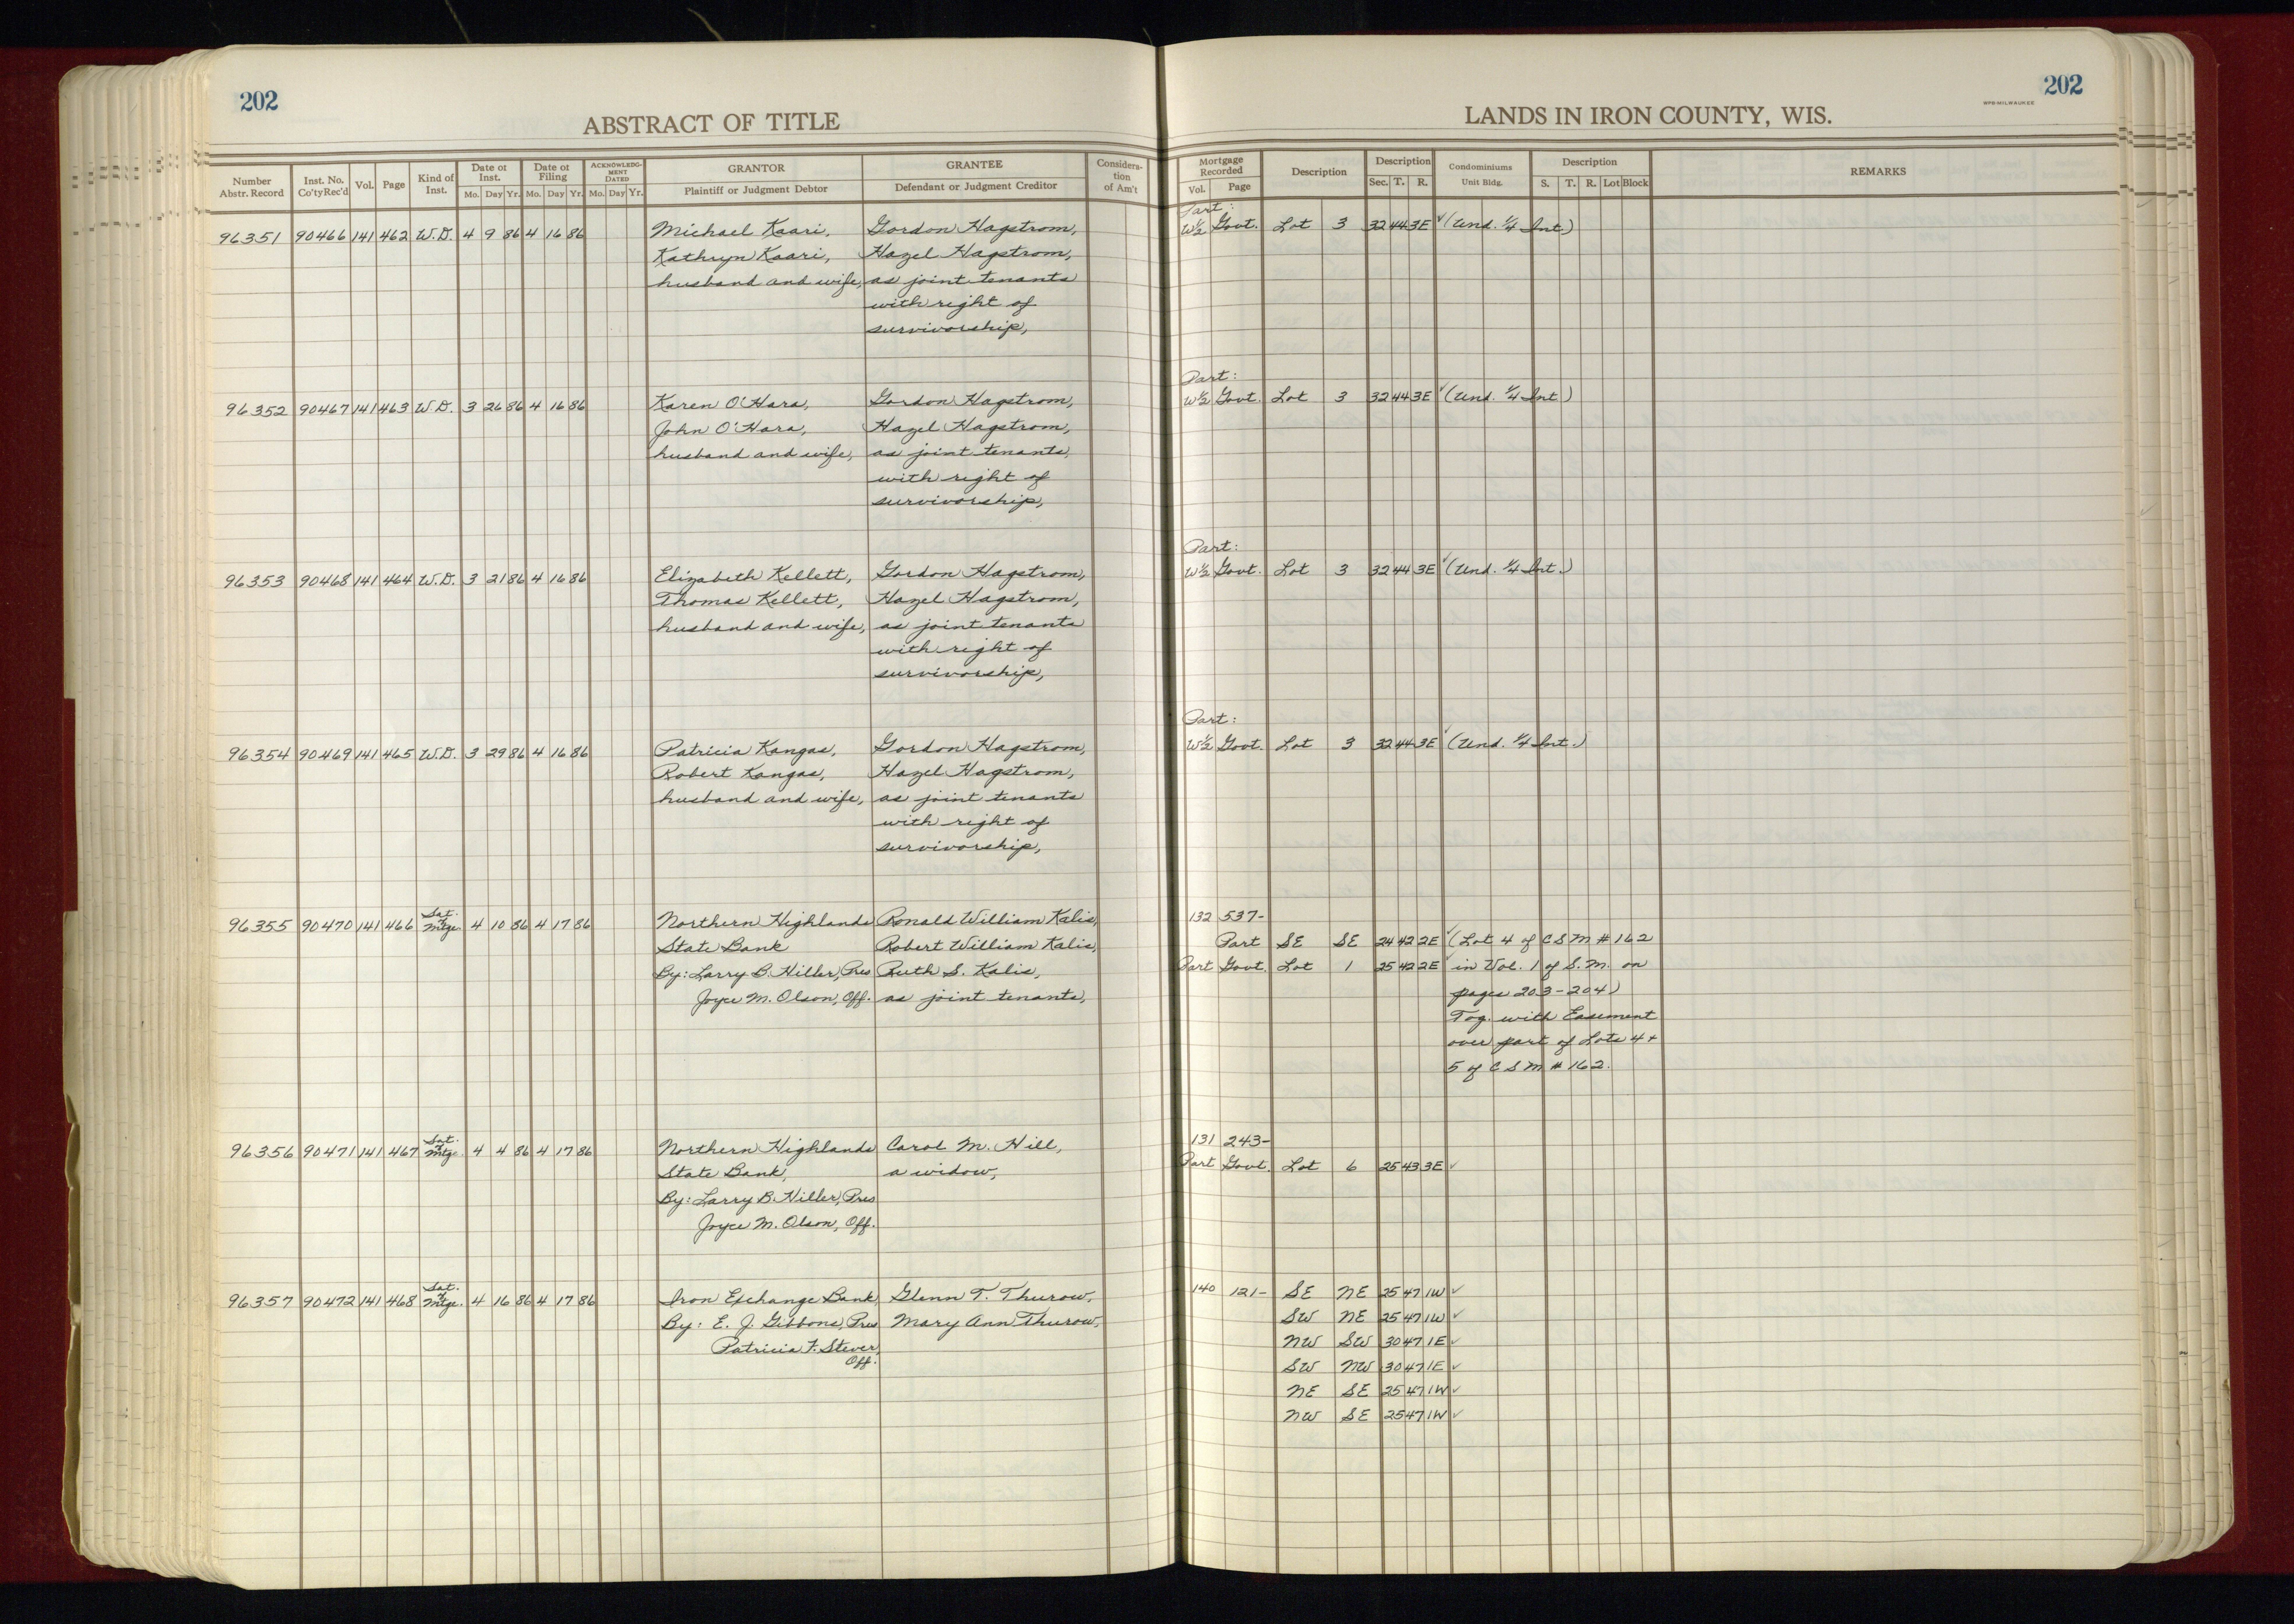 202
ABSTRACT OF TITLE
Number Abstr. Record
Inst. No. Co'ty Rec'd
Vol.
Page
Kind of Inst.
Date of Inst.
Mo. Day Yr.
Date of Filing
Mo. Day Yr.
ACKNOWLEDGMENT DATED
Mo. Day Yr.
GRANTOR
Plaintiff or Judgment Debtor
GRANTEE
Defendant or Judgment Creditor
Consideration of Am't
202
WPB-MILWAUKEE
LANDS IN IRON COUNTY, WIS.
Mortgage Recorded
Vol. Page
Description
Description
Sec. T. R.
Condominiums
Unit Bldg.
Description
S. T. R. Lot Block
REMARKS
Part:
96351 90466 141 462 W.D. 4 9 86 4 16 86 Michael Kaari, Gordon Hagstrom, W½ Govt. Lot 3 32 44 3E ✓ (Und. ¼ Int.)
Kathryn Kaari, Hazel Hagstrom,
husband and wife, as joint tenants
with right of
survivorship,
Part:
96352 90467 141 463 W.D. 3 26 86 4 16 86 Karen O'Hara, Gordon Hagstrom, W½ Govt. Lot 3 32 44 3E ✓ (Und. ¼ Int)
John O'Hara, Hazel Hagstrom,
husband and wife, as joint tenants,
with right of
survivorship,
Part:
96353 90468 141 464 W.D. 3 21 86 4 16 86 Elizabeth Kellett, Gordon Hagstrom, W½ Govt. Lot 3 32 44 3E ✓ (Und. ¼ Int.)
Thomas Kellett, Hazel Hagstrom,
husband and wife, as joint tenants
with right of
survivorship,
Part:
96354 90469 141 465 W.D. 3 29 86 4 16 86 Patricia Kangas, Gordon Hagstrom, W½ Govt. Lot 3 32 44 3E ✓ (Und. ¼ Int.)
Robert Kangas, Hazel Hagstrom,
husband and wife, as joint tenants
with right of
survivorship,
96355 90470 141 466 Sat. of Mtge. 4 10 86 4 17 86 Northern Highlands Ronald William Kalis, 132 537-
State Bank Robert William Kalis, Part SE SE 24 42 2E ✓ (Lot 4 of CSM # 162
By: Larry B. Hiller, Pres Ruth S. Kalis, Part Govt. Lot 1 25 42 2E ✓ in Vol. 1 of S.M. on
Joyce M. Olson, Off. as joint tenants, pages 203-204)
Tog. with Easement
over part of Lots 4 +
5 of CSM # 162.
96356 90471 141 467 Sat. of Mtge. 4 4 86 4 17 86 Northern Highlands Carol M. Hill, 131 243-
State Bank, a widow, Part Govt. Lot 6 25 43 3E ✓
By: Larry B. Hiller, Pres
Joyce M. Olson, Off.
96357 90472 141 468 Sat. of Mtge. 4 16 86 4 17 86 Iron Exchange Bank, Glenn T. Thurow, 140 121- SE NE 25 47 1W ✓
By: E. J. Gibbons, Pres Mary Ann Thurow, SW NE 25 47 1W ✓
Patricia F. Stever, NW SW 30 47 1E ✓
Off. SW NW 30 47 1E ✓
NE SE 25 47 1W ✓
NW SE 25 47 1W ✓